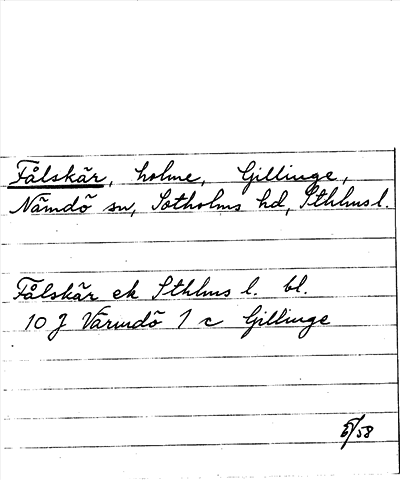 Fålskär, holme, Gillinge,
Nämdö sn, Sotholms hd, Sthlms l.
Fålskär ek Sthlms l. bl.
10 J Värmdö 1 c Gillinge
/58